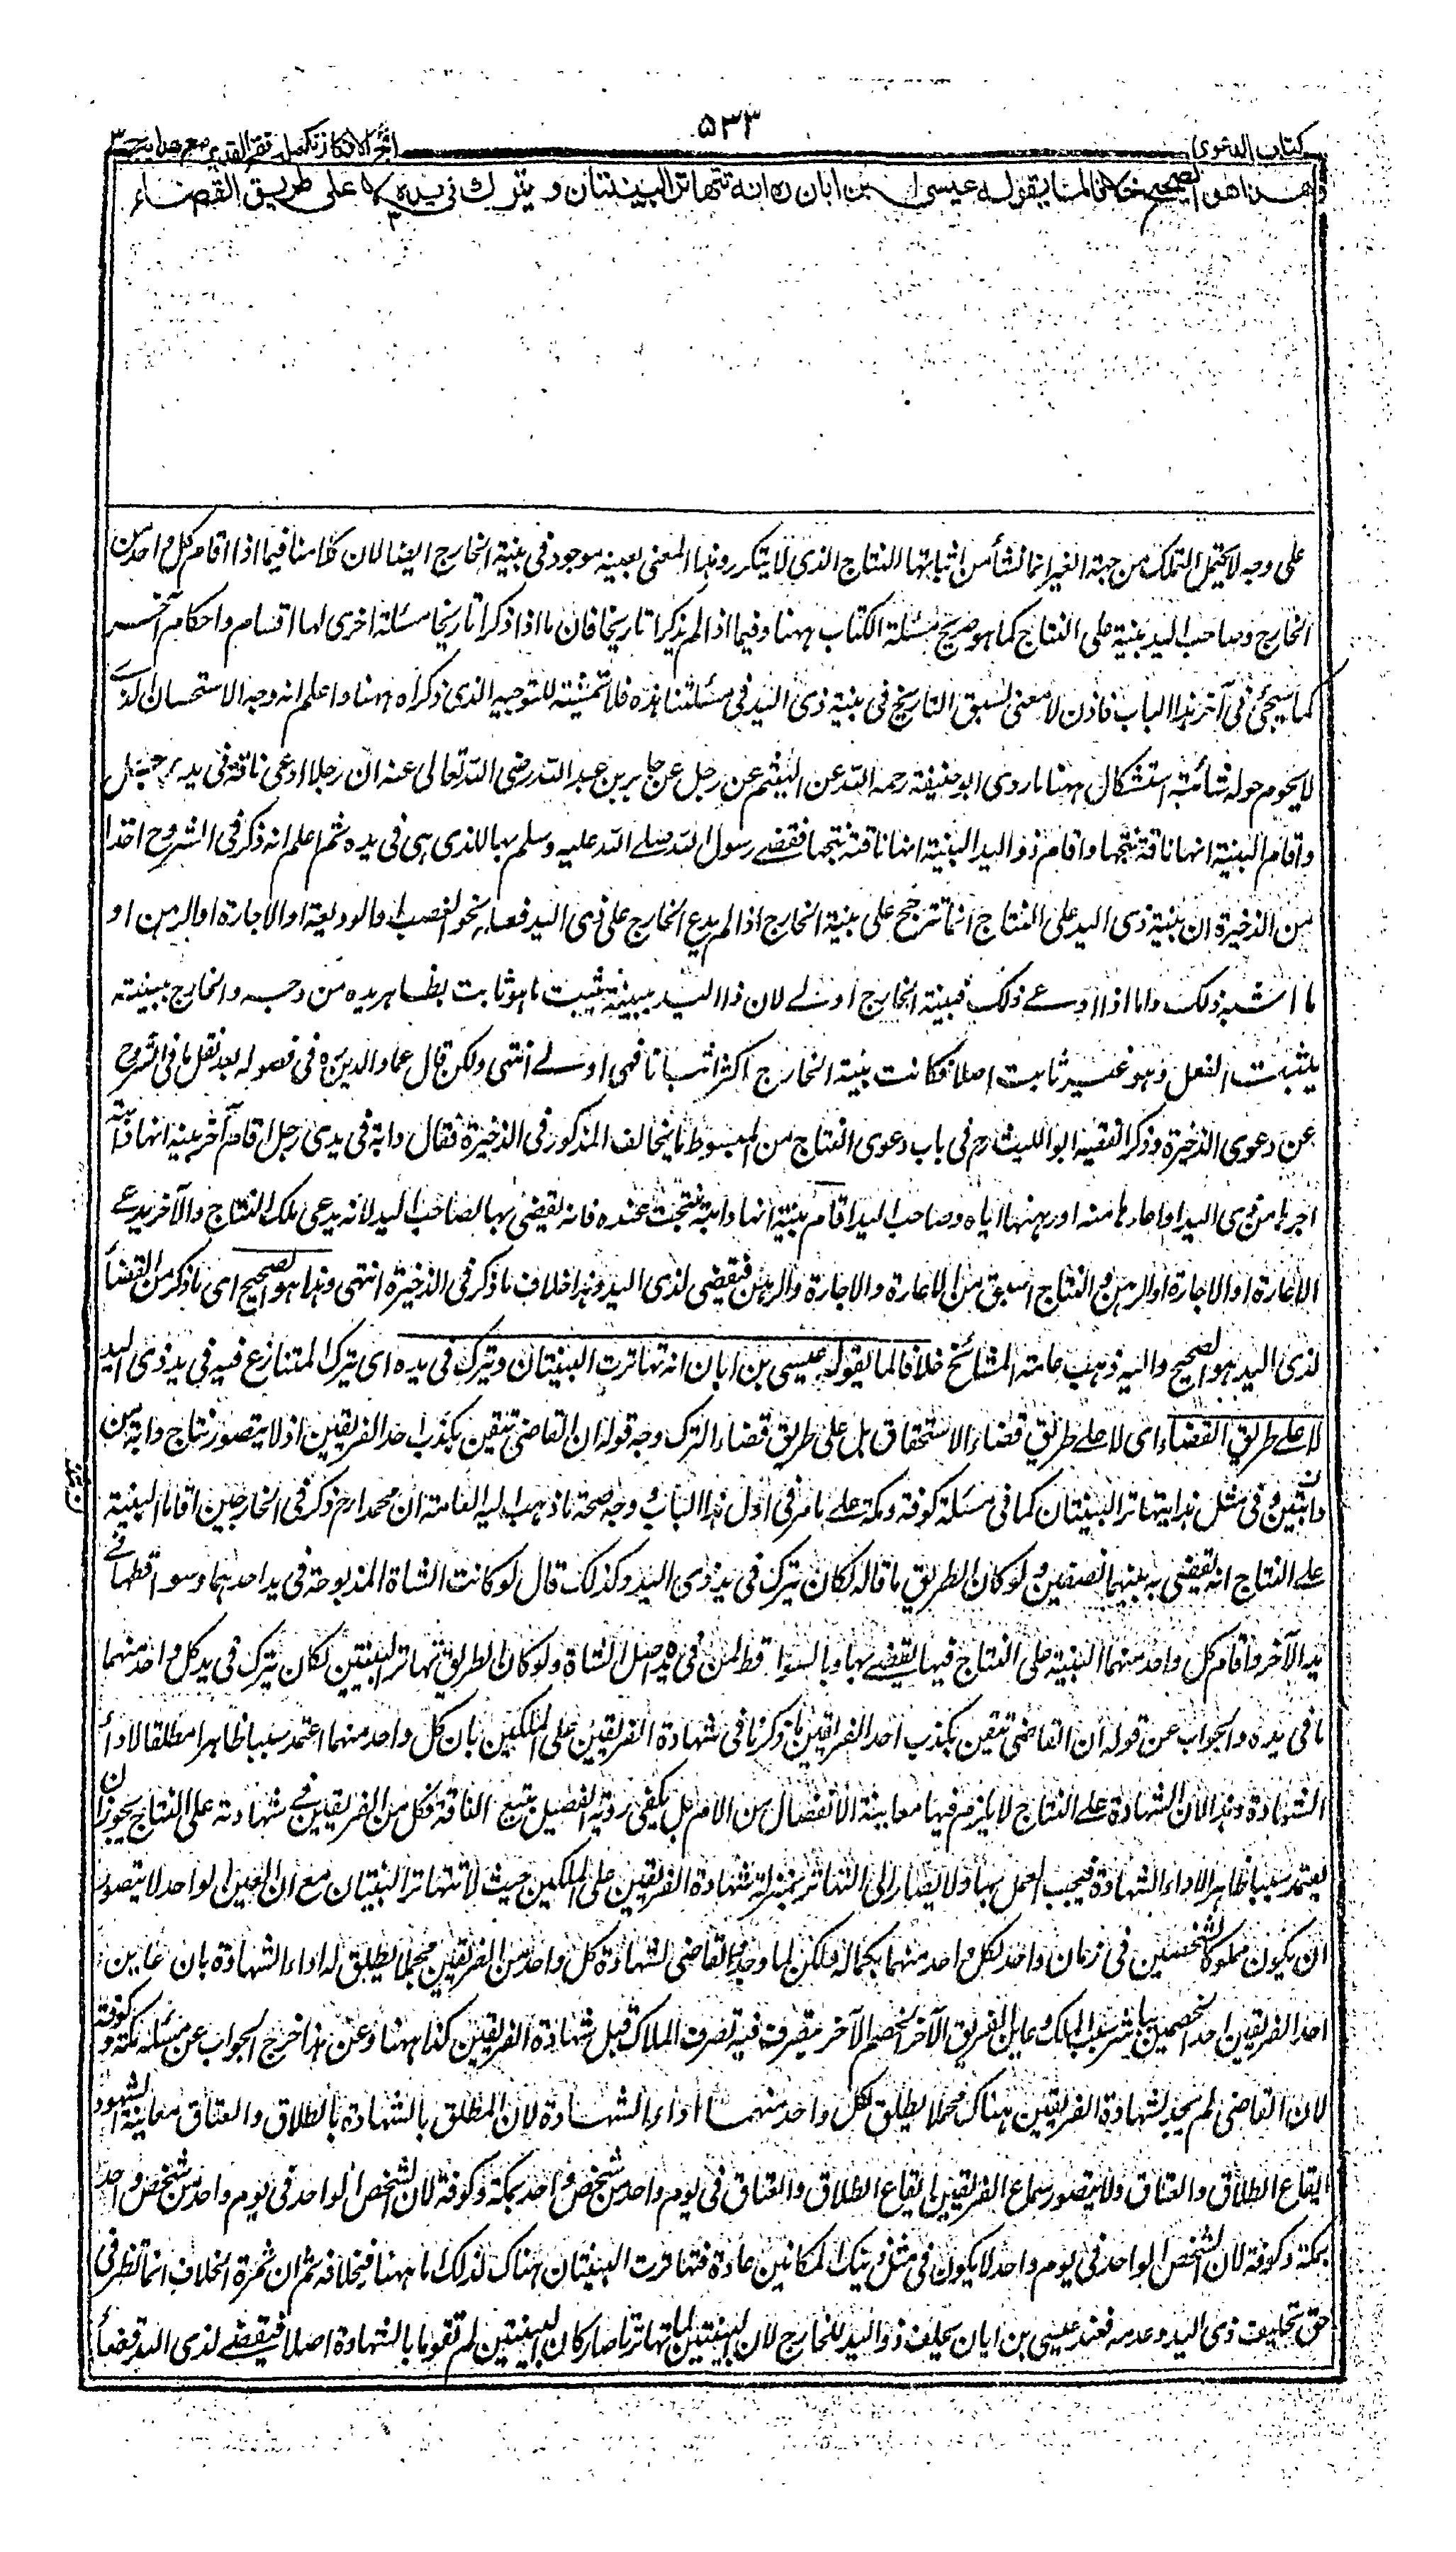 كتاب الدعوى
٥٣٣
نتائج الافكار تكملة فتح القدير مع هدايه ج ٣
وهذا هو الصحيح خلافا لما يقوله عيسى بن ابان ره انه تتهاتر البينتان ويترك في يده لا على طريق القضاء
على وجه لا يحتمل التملك من جهة الغير انما نشأ من اثباتها النتاج الذي لا يتكرر وهذا المعنى بعينه موجود في بينة الخارج ايضا لان كلامنا فيما اذا اقام كل واحد من
الخارج وصاحب اليد بينة على النتاج كما هو صريح مسئلة الكتاب ههنا وفيما اذا لم يذكرا تاريخا فان ما اذا ذكرا تاريخا مسئلة اخرى لها اقسام واحكام آخر
كما سيجئ في آخر هذا الباب فاذن لا معنى لسبق التاريخ في بينة ذي اليد في مسئلتنا هذه فلا تمشية للتوجيه الذي ذكراه ههنا واعلم انه وجه الاستحسان الذي
لا يحوم حوله شائبة استشكال ههنا ما روى ابو حنيفة رحمه الله عن الهيثم عن رجل عن جابر بن عبد الله رضى الله تعالى عنه ان رجلا ادعى ناقة في يد رجل
واقام البينة انها ناقة نتجها واقام ذو اليد البينة انها ناقته نتجها فقضے رسول الله صلے الله عليه وسلم بها للذى هى في يده ثم اعلم انه ذكر فى الشروح اخذا
من الذخيرة ان بينة ذى اليد على النتاج انما تترجح على بينة الخارج اذا لم يدع الخارج على ذى اليد فعلا نحو الغصب او الوديعة او الاجارة او الرهن او
ما اشبه ذلك واما اذا ادعے ذلك فبينة الخارج اولے لان ذا اليد ببينته يثبت ما هو ثابت بظاهر يده من وجه والخارج ببينته
يثبت الفعل وهو غير ثابت اصلا فكانت بينة الخارج اكثر اثباتا فهى اولے انتهى ولكن قال عماد الدين ره فى فصوله بعد نقل ما فى الشروح
عن دعوى الذخيرة وذكر الفقيه ابو الليث رح فى باب دعوى النتاج من المبسوط ما يخالف المذكور فى الذخيرة فقال دابة فى يدى رجل اقام آخر بينة انها دابته
آجرها من ذى اليد او اعارها منه او رهنها اياه وصاحب اليد اقام بينة انها دابته نتجت عنده فانه يقضى بها لصاحب اليد لانه يدعى ملك النتاج والآخر يدعے
الاعارة او الاجارة او الرهن والنتاج اسبق من الاعارة والاجارة والرهن فيقضى لذى اليد وهذا خلاف ما ذكر فى الذخيرة انتهى وهذا هو الصحيح اى ما ذكر من القضاء
لذى اليد هو الصحيح واليه ذهب عامة المشائخ خلافا لما يقوله عيسى بن ابان انه تهاترت البينتان وترك فى يده اى يترك المتنازع فيه فى يد ذى اليد
لا علے طريق القضاء اى لا علے طريق قضاء الاستحقاق بل على طريق قضاء الترك وجه قوله ان القاضى تيقن بكذب احد الفريقين اذ لا يتصور نتاج دابة من
دابتين وفى مثل هذا يتهاتر البينتان كما فى مسئلة كوفة ومكة علے ما مر فى اول هذا الباب ووجه صحة ما ذهب اليه العامة ان محمدا رح ذكر فى الخارجين اقاما البينة
علے النتاج انه يقضى به بينهما نصفين ولو كان الطريق ما قاله لكان يترك فى يد ذى اليد وكذلك قال لو كانت الشاة المذبوحة فى يد احدهما وسواقطها فے
يد الآخر واقام كل واحد منهما البينة على النتاج فيها يقضے بها وبالسواقط لمن فى يده اصل الشاة ولو كان الطريق تهاتر البينتين لكان يترك فى يد كل واحد منهما
ما فى يده والجواب عن قوله ان القاضى تيقن بكذب احد الفريقين ما ذكرنا فى شهادة الفريقين على الملكين بان كل واحد منهما اعتمد سببا ظاهرا مطلقا لاداء
الشهادة وهذا لان الشهادة علے النتاج لا يلزم فيها معاينة الانفصال من الام بل يكفى رؤية الفصيل يتبع الناقة فكل من الفريقين فے شهادته على النتاج يجوز ان
يعتمد سببا ظاهرا لاداء الشهادة فيجب العمل بها ولا يصار الى التهاتر بمنزلة شهادة الفريقين على الملكين حيث لا تتهاتر البينتان مع ان العين الواحد لا يتصور
ان يكون مملوكا لشخصين فى زمان واحد لكل واحد منهما بكماله ولكن لما وجد القاضى لشهادة كل واحد من الفريقين محملا يطلق له اداء الشهادة بان عاين
احد الفريقين احد الخصمين باشر سبب الملك وعاين الفريق الآخر الخصم الآخر يتصرف فيه تصرف الملاك قبل شهادة الفريقين كذا ههنا وعن هذا خرج الجواب عن مسئلة مكة وكوفة
لان القاضى لم يجد لشهادة الفريقين هناك محملا يطلق لكل واحد منهما اداء الشهادة لان المطلق بالشهادة بالطلاق والعتاق معاينة الشهود
ايقاع الطلاق والعتاق ولا يتصور سماع الفريقين ايقاع الطلاق والعتاق فى يوم واحد من شخص واحد بمكة وكوفة لان الشخص الواحد فى يوم واحد من شخص واحد
بمكة وكوفة لان الشخص الواحد فى يوم واحد لا يكون فى مثل ذينك المكانين عادة فتهاترت البينتان هناك لذلك اما ههنا فبخلافه ثم ان ثمرة الخلاف انما تظهر فى
حق تحليف ذى اليد وعدمه فعند عيسى بن ابان يحلف ذو اليد للخارج لان البينتين لما تهاترتا صار كان البينتين لم تقوما بالشهادة اصلا فيقضے لذى اليد قضاء